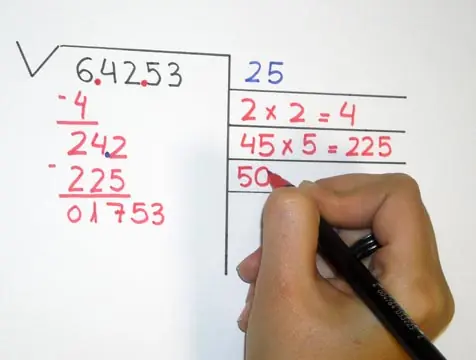 √6.42.53 25
- 4 2 × 2 = 4
24.2 45 × 5 = 225
- 225 50
01753